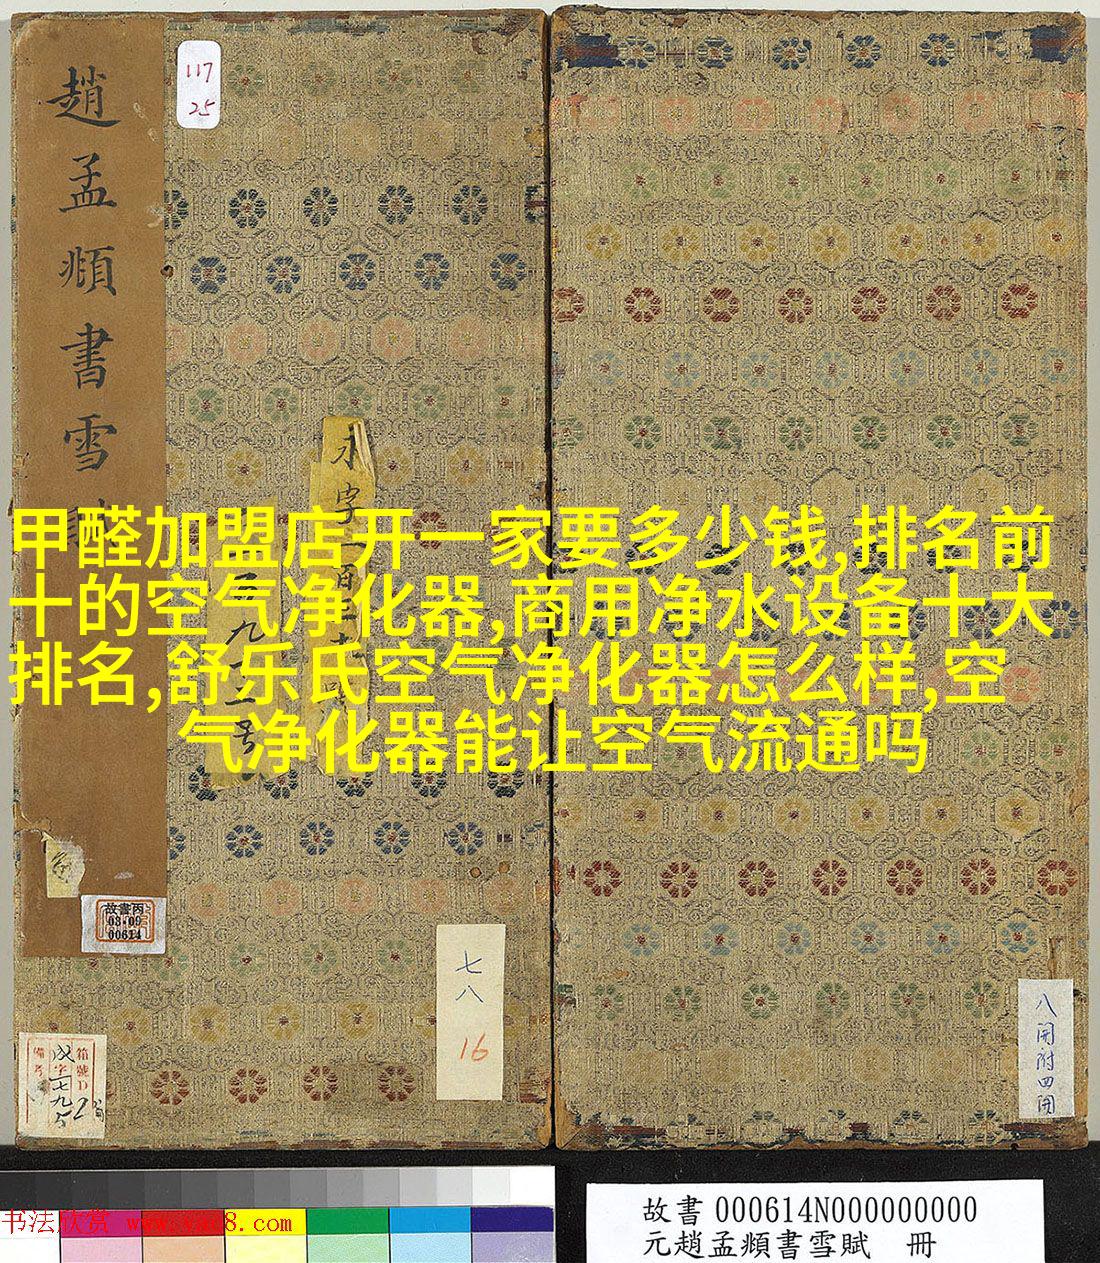 趙孟頫書雪賦
117
25
永字
甲醛加盟店开一家要多少钱,排名前
十的空气净化器,商用净水设备十大
排名,舒乐氏空气净化器怎么样,空
气净化器能让空气流通吗
故書丙
03-09
00614
七八
16
箱號D
備考
八開附四開
书法欣赏 www.yac8.com
故書 000614N000000000
元趙孟頫書雪賦 冊